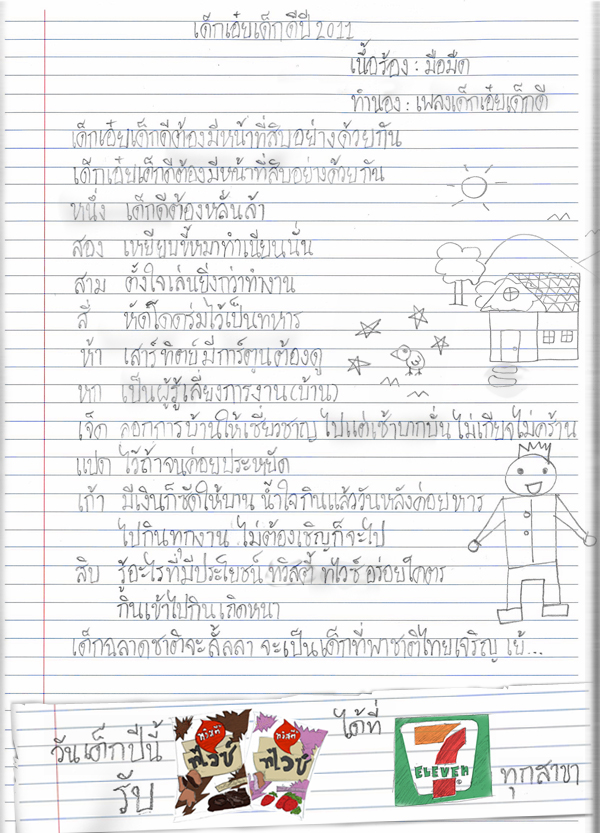 เด็กเอ๋ยเด็กดีปี 2011
เนื้อร้อง : มือมืด
ทำนอง : เพลงเด็กเอ๋ยเด็กดี
เด็กเอ๋ยเด็กดีต้องมีหน้าที่สิบอย่างด้วยกัน
เด็กเอ๋ยเด็กดีต้องมีหน้าที่สิบอย่างด้วยกัน
หนึ่ง เด็กดีต้องหลั่นล้า
สอง เหยียบขี้หมาทำเนียนนั่น
สาม ตั้งใจเล่นยิ่งกว่าทำงาน
สี่ หัดโดดร่มไว้เป็นทหาร
ห้า เสาร์ทิตย์มีการ์ตูนต้องดู
หก เป็นผู้รู้เลี่ยงการงาน(บ้าน)
เจ็ด ลอกการบ้านให้เชี่ยวชาญ ไปแต่เช้าบากบั่น ไม่เกียจไม่คร้าน
แปด ไว้ถ้าจนค่อยประหยัด
เก้า มีเงินก็ซัดให้บาน น้ำใจกินแล้ววันหลังค่อยหาร
ไปกินทุกงาน ไม่ต้องเชิญก็จะไป
สิบ รู้อะไรที่มีประโยชน์ ทวิสตี้ ทไวซ์ อร่อยโคตร
กินเข้าไปกินเถิดหนา
เด็กฉลาดชาติจะลั้ลลา จะเป็นเด็กที่พาชาติไทยเจริญ เย้...
วันเด็กปีนี้
รับ
ทวิสตี้
ทไวซ์
ทวิสตี้
ทไวซ์
ได้ที่
7
ELEVEN
ทุกสาขา